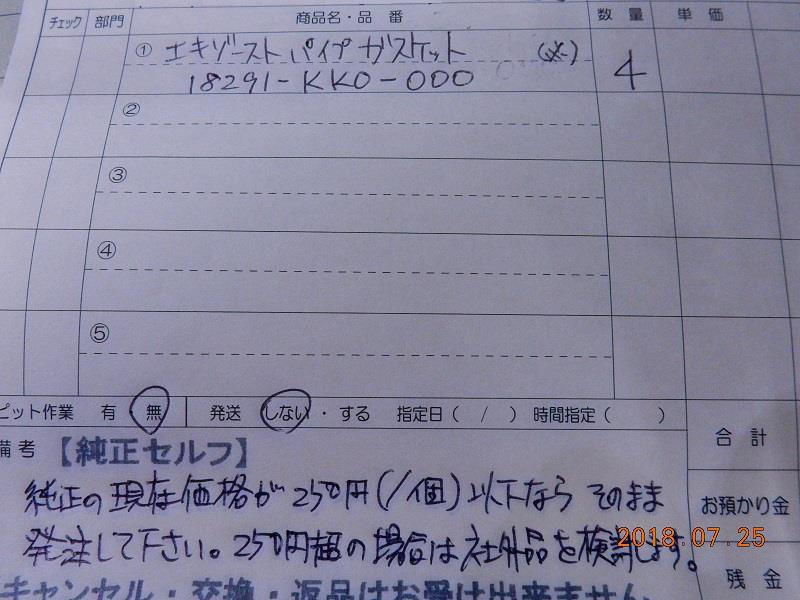 チェック 部門 商品名・品 番 数 量 単 価
① エキゾーストパイプガスケット (※) 4
18291-KK0-000
②
③
④
⑤
ピット作業 有 無 発送 しない・する 指定日( / ) 時間指定( )
合 計
備考 【純正セルフ】
純正の現在価格が250円(/個)以下なら そのまま
お預かり金
発注して下さい。250円超の場合は社外品を検討します。
2018.07.25
残 金
キャンセル・交換・返品はお受け出来ません